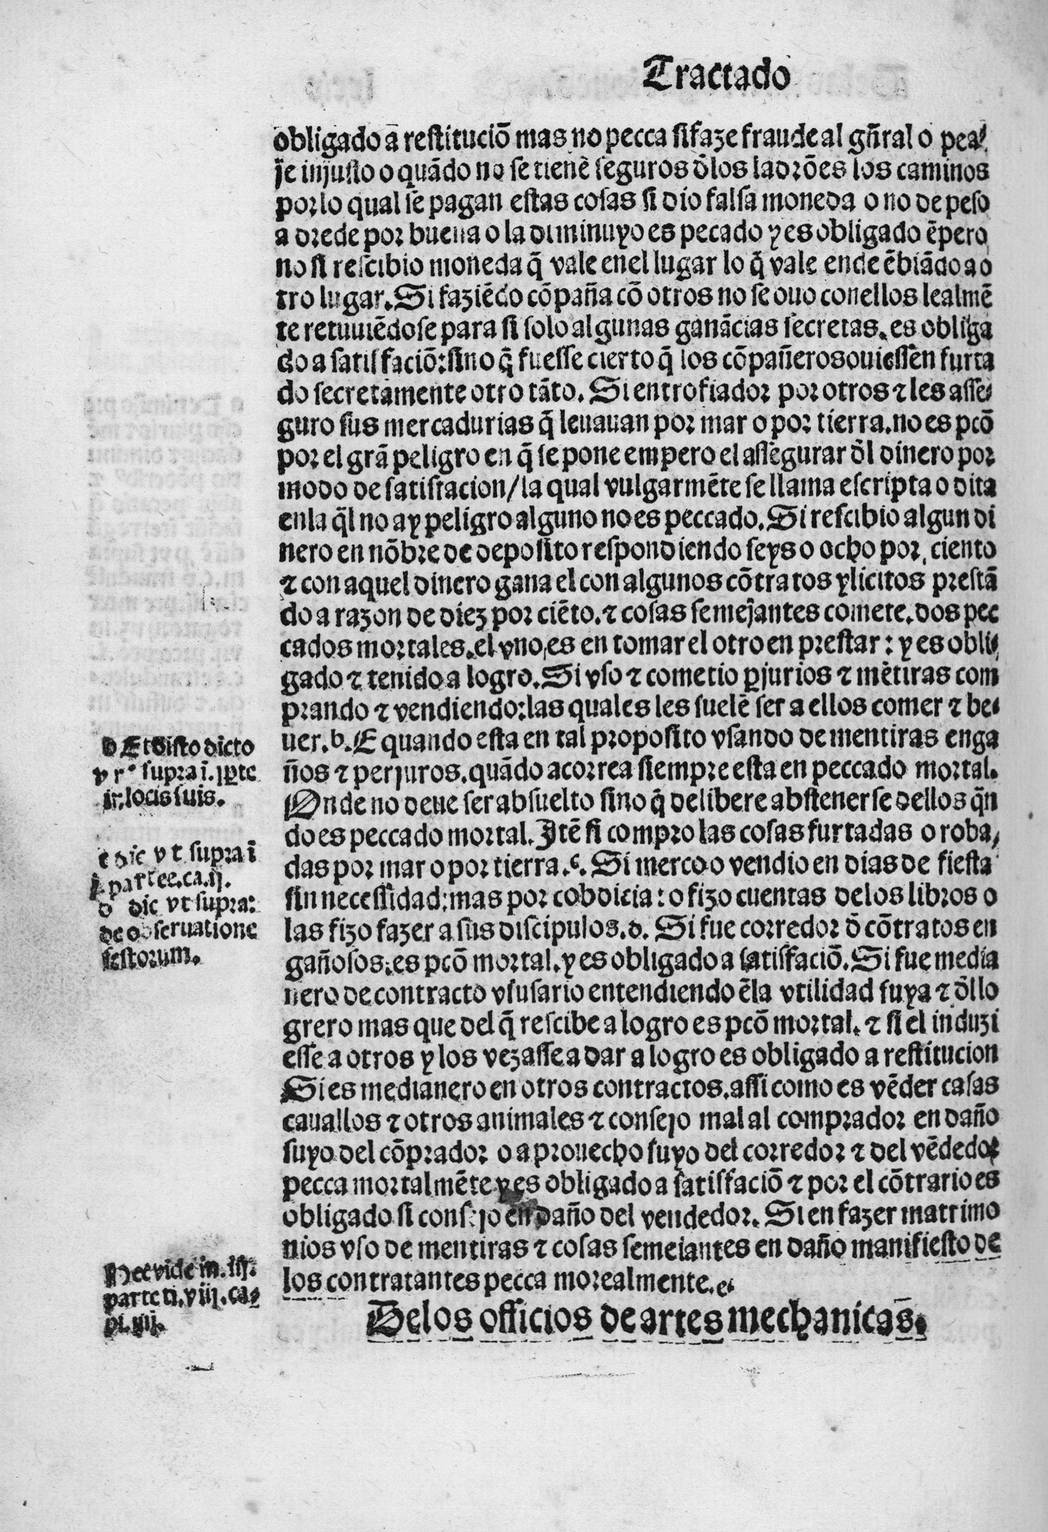 Tractado
obligado a restituciõ mas no pecca si faze fraude al gñral o pea
je injusto o quãdo no se tienẽ seguros dlos ladrões los caminos
por lo qual se pagan estas cosas si dio falsa moneda o no de peso
a drede por buena o la diminuyo es pecado y es obligado ẽpero
no si rescibio moneda q̃ vale enel lugar lo q̃ vale ende ẽbiãdo a o
tro lugar. Si faziẽdo cõpañia cõ otros no se ouo conellos lealmẽ
te retuuiẽdose para si solo algunas ganãcias secretas. es obliga
do a satisfaciõ: sino q̃ fuesse cierto q̃ los cõpañeros ouiessen furta
do secretamente otro tãto. Si entro fiador por otros ⁊ les asse
guro sus mercadurias q̃ leuauan por mar o por tierra. no es pcõ
por el grã peligro en q̃ se pone empero el assegurar dl dinero por
modo de satisfacion/la qual vulgarmẽte se llama escripta o dita
enla q̃l no ay peligro alguno no es peccado. Si rescibio algun di
nero en nõbre de deposito respondiendo seys o ocho por ciento
⁊ con aquel dinero gana el con algunos cõtratos ylicitos prestã
do a razon de diez por ciẽto. ⁊ cosas semejantes comete. dos pec
cados mortales. el vno es en tomar el otro en prestar: y es obli
gado ⁊ tenido a logro. Si vso ⁊ cometio ꝑjurios ⁊ mẽtiras com
prando ⁊ vendiendo: las quales les suelẽ ser a ellos comer ⁊ be
uer. b. E quando esta en tal proposito vsando de mentiras enga
ños ⁊ perjuros. quãdo acorrea siempre esta en peccado mortal.
Onde no deue ser absuelto sino q̃ delibere abstenerse dellos q̃n
do es peccado mortal. Jtẽ si compro las cosas furtadas o roba
das por mar o por tierra. c. Si merco o vendio en dias de fiesta
sin necessidad: mas por cobdicia: o fizo cuentas delos libros o
las fizo fazer a sus discipulos. d. Si fue corredor d cõtratos en
gañosos. es pcõ mortal. y es obligado a satisfaciõ. Si fue media
nero de contracto vsusario entendiendo ẽla vtilidad suya ⁊ dllo
grero mas que del q̃ rescibe a logro es pcõ mortal. ⁊ si el induzi
esse a otros y los vezasse a dar a logro es obligado a restitucion
Si es medianero en otros contractos. assi como es vẽder casas
cauallos ⁊ otros animales ⁊ consejo mal al comprador en daño
suyo del cõprador o a prouecho suyo del corredor ⁊ del vẽdedor
pecca mortalmẽte y es obligado a satisfaciõ ⁊ por el cõtrario es
obligado si consejo en daño del vendedor. Si en fazer matrimo
nios vso de mentiras ⁊ cosas semejantes en daño manifiesto de
los contratantes pecca morealmente. e.
Delos officios de artes mechanicas.
b Et disto dicto
v r supra ĩ. ꝑte
ir. locis suis.
c dic vt supra ĩ
parte e. ca. ij.
d dic vt supra:
de obseruatione
festorum.
vide in. iij.
parte ti. viij. ca
pi. iiij.